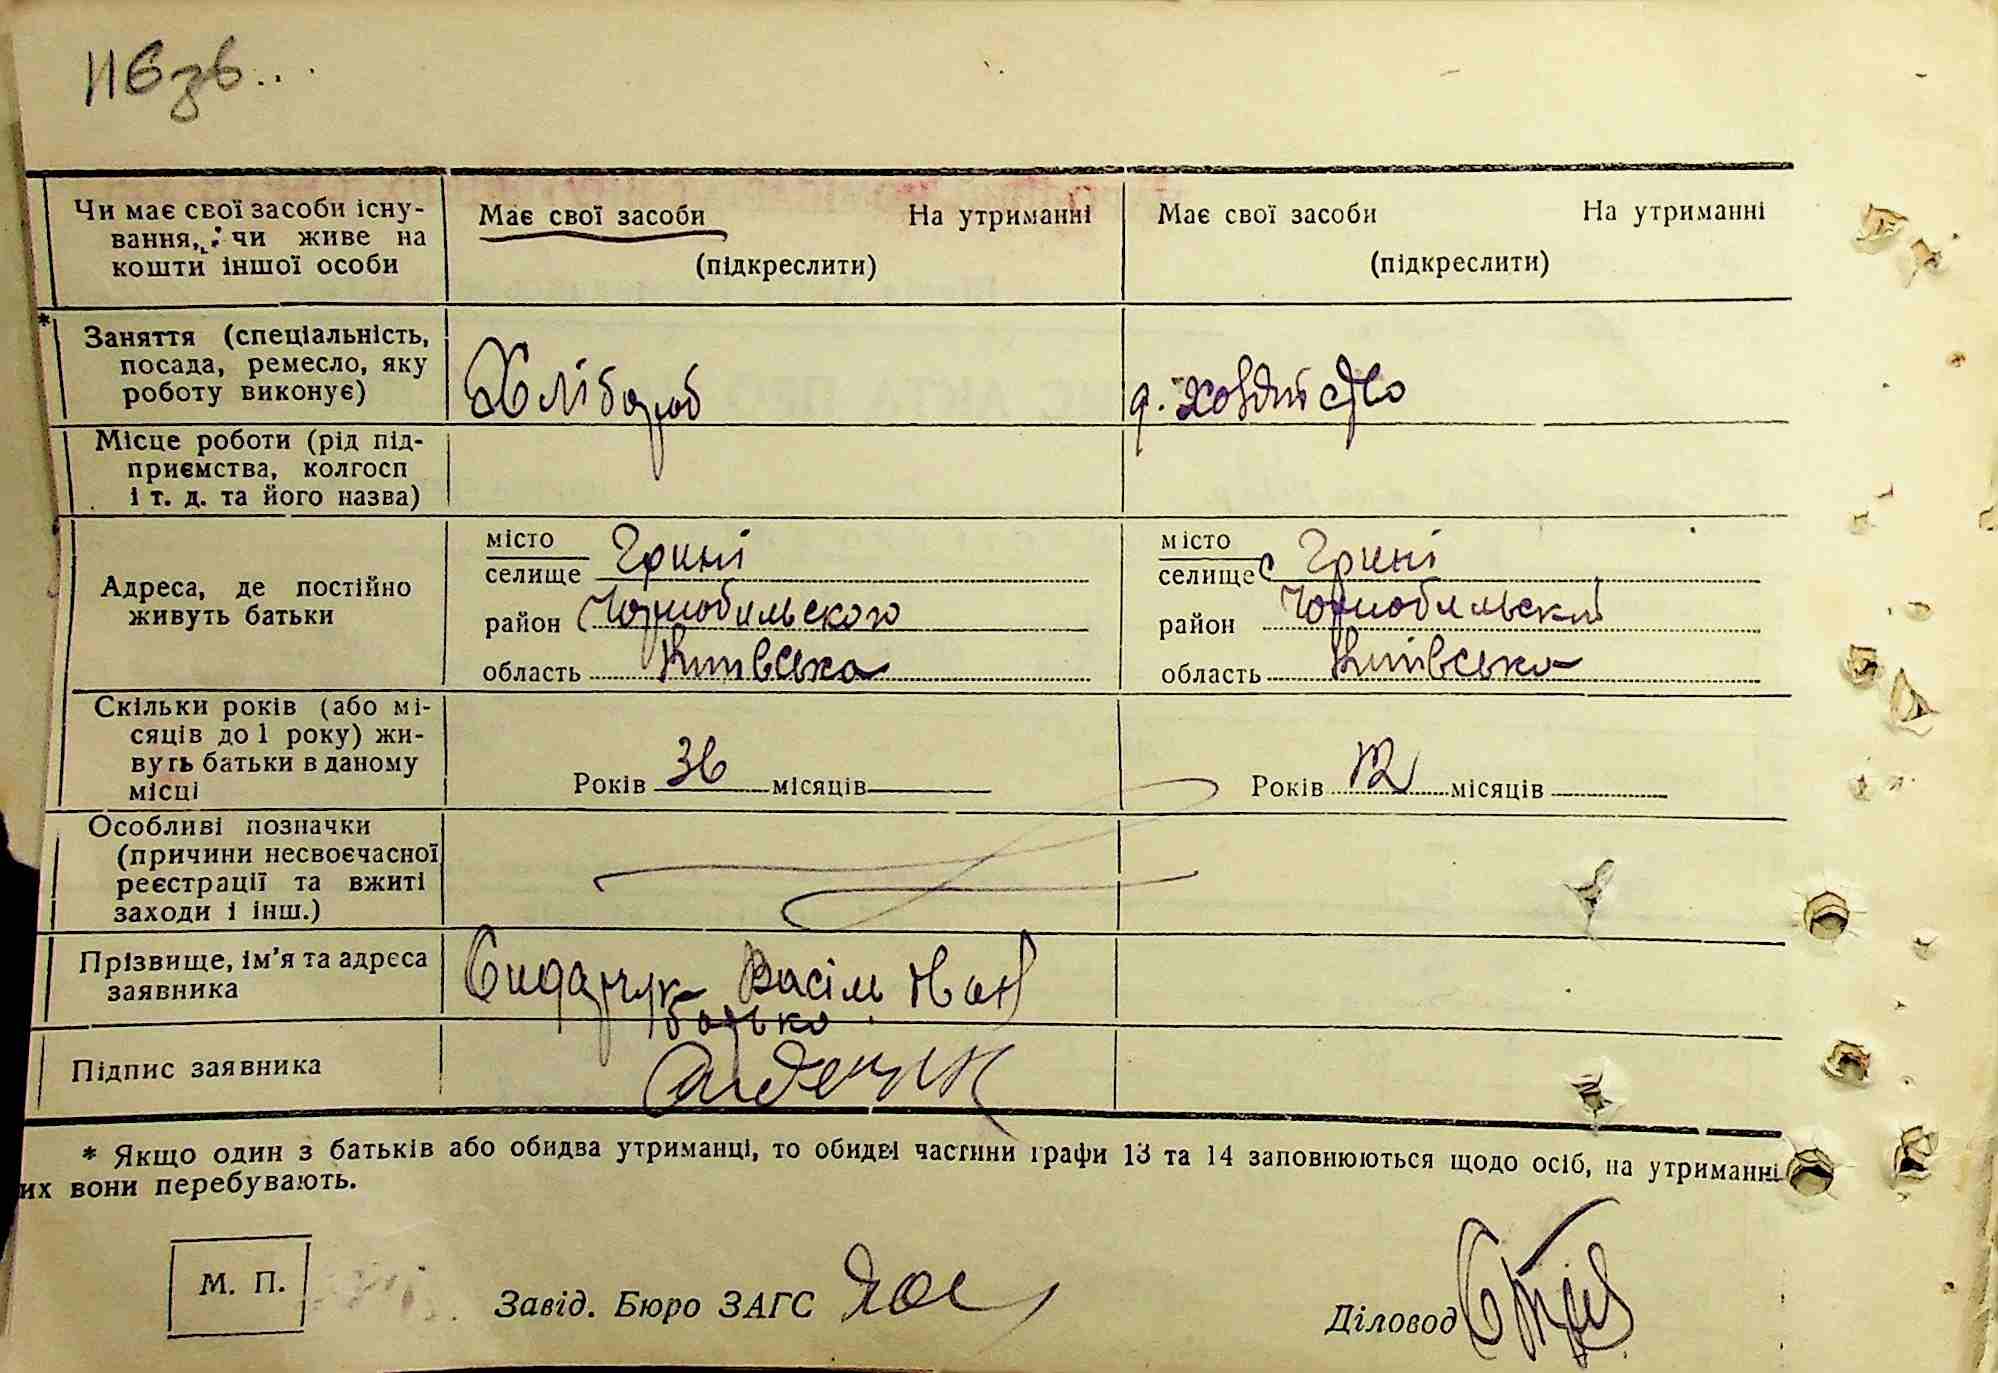 Чи має свої засоби існу-
вання, чи живе на
кошти іншої особи
Має свої засоби На утриманні
(підкреслити)
Має свої засоби На утриманні
(підкреслити)
* Заняття (спеціальність,
посада, ремесло, яку
роботу виконує)
Хлібороб
д. хозяйство
Місце роботи (рід під-
приємства, колгосп
і т. д. та його назва)
Адреса, де постійно
живуть батьки
місто
селище Грині
район Чорнобильского
область Київська
місто
селище с Грині
район Чорнобильский
область Київська
Скільки років (або мі-
сяців до 1 року) жи-
вуть батьки в даному
місці
Років 36 місяців
Років 12 місяців
Особливі позначки
(причини несвоєчасної
реєстрації та вжиті
заходи і інш.)
Прізвище, ім’я та адреса
заявника
Васіль Іван
батько
Підпис заявника
* Якщо один з батьків або обидва утриманці, то обидві частини графи 13 та 14 заповнюються щодо осіб, на утриманні
их вони перебувають.
М. П.
Завід. Бюро ЗАГС
Діловод